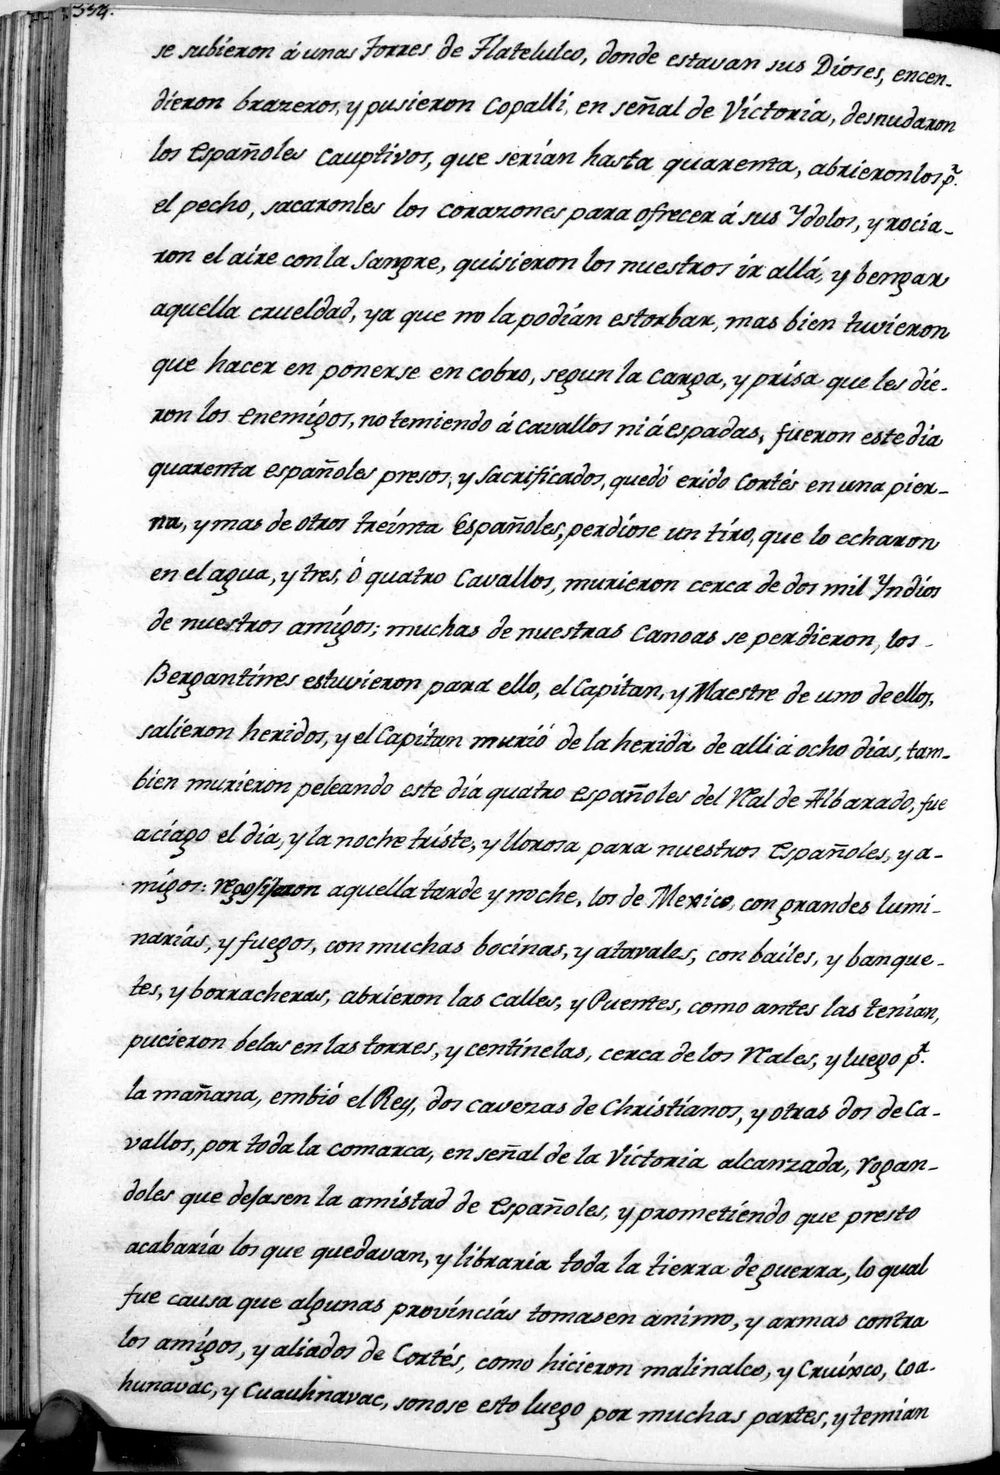 334.
se subieron á unas Torres de Tlatelulco, donde estavan sus Dioses, encen-
dieron brazeros, y pusieron Copalli, en señal de Victoria, desnudaron
los Españoles Cauptivos, que serían hasta quarenta, abrieronlos pr.
el pecho, sacaronles los corazones para ofrecer á sus Ydolos, y rocia-
ron el aire con la Sangre, quisieron los nuestros ir allá, y bengar
aquella crueldad, ya que no la podían estorbar, mas bien tuvieron
que hacer en ponerse en cobro, segun la carga, y prisa que les die-
ron los enemigos, no temiendo á cavallos ni á espadas, fueron este día
quarenta españoles presos, y Sacrificados, quedó erido Cortés en una pier-
na, y mas de otros treinta Españoles, perdíose un tiro, que lo echaron
en el agua, y tres, ó quatro Cavallos, murieron cerca de dos mil Yndios
de nuestros amígos; muchas de nuestras Canoas se perdieron, los
Bergantines estuvieron para ello, el Capitan, y Maestre de uno de ellos,
salieron heridos, y el Capitan murió de la herida de alli á ocho dias, tam-
bien murieron peleando este día quatro españoles del Real de Albarado, fue
aciago el dia, y la noche triste, y llorosa para nuestros españoles, y a-
migos: aquella tarde y noche, los de Mexico, con grandes lumi-
narias, y fuegos, con muchas bocinas, y atavales, con bailes, y banque-
tes, y borracheras, abrieron las calles, y Puentes, como antes las tenian,
pucieron belas en las torres, y centinelas, cerca de los Rales, y luego pr.
la mañana, embió el Rey, dos cavezas de Christianos, y otras dos de Ca-
vallos, por toda la comarca, en señal de la Victoria alcanzada, rogan-
doles que dejasen la amistad de españoles, y prometiendo que presto
acabaría los que quedavan, y libraría toda la tierra de guerra, lo qual
fue causa que algunas províncias tomasen animo, y armas contra
los amígos, y aliados de Cortés, como hicieron malinalco, y Cruixco, coa-
hunavac, y Cuauhnavac, sonose esto luego por muchas partes, y temian